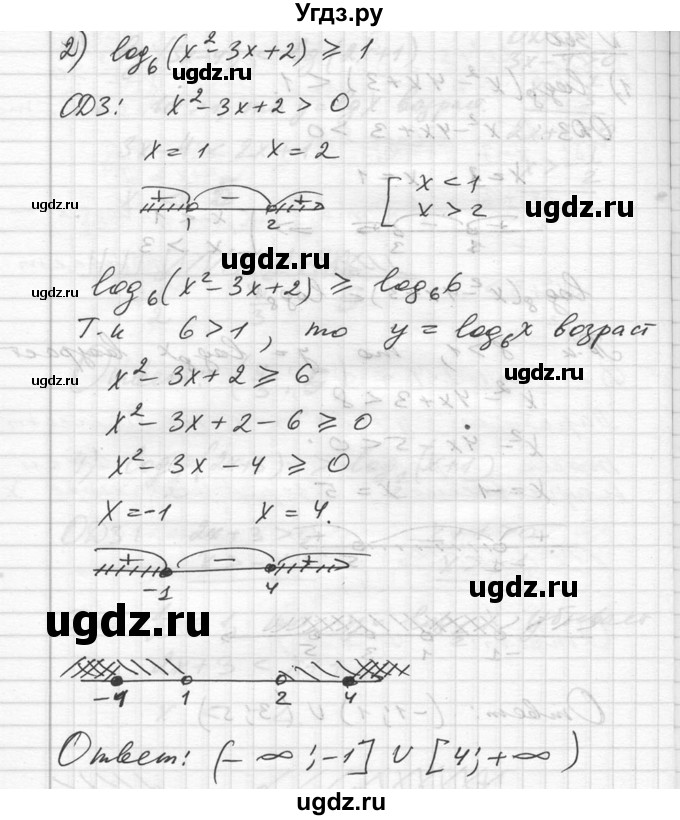 Угдз.ру
2) log₆(x² - 3x + 2) ⩾ 1
ugdz.ru
ОДЗ: x² - 3x + 2 > 0
x = 1 x = 2
ugdz.ru
+ - +
1 2
[ x < 1
x > 2
ugdz.ru
ugdz.ru
ugdz.ru
log₆(x² - 3x + 2) ⩾ log₆6
Т.к 6 > 1, то y = log₆x возраст
ugdz.ru
ugdz.ru
x² - 3x + 2 ⩾ 6
x² - 3x + 2 - 6 ⩾ 0
x² - 3x - 4 ⩾ 0
x = -1 x = 4.
+ - +
-1 4
ugdz.ru
ugdz.ru
-1 1 2 4
Ответ: (-∞; -1] ∪ [4; +∞)
ugdz.ru
ugdz.ru